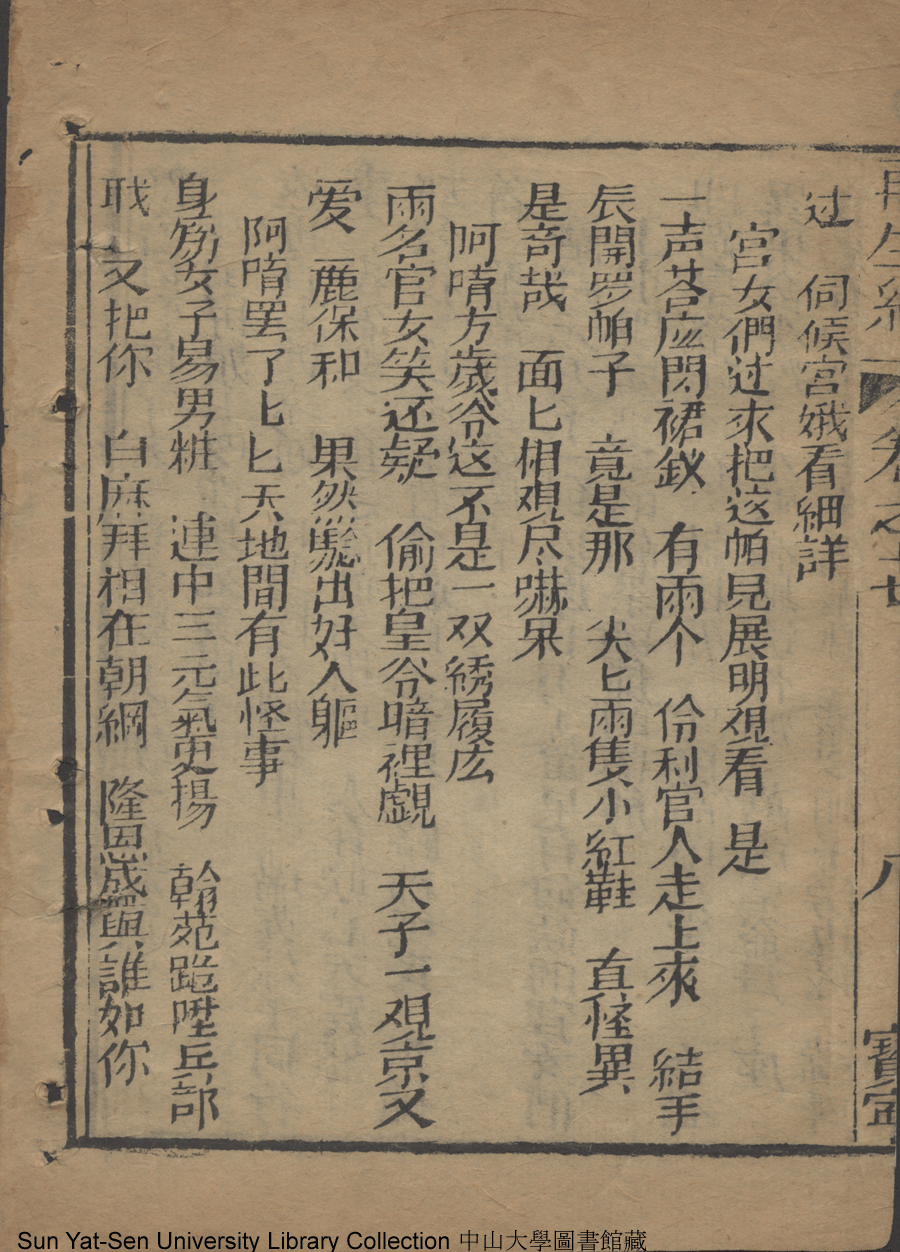 再生緣 卷之廿 八 寶寧
过 伺候宮娥看細詳
宮女們过來把这帕見展明覌看 是
一声荅应閃裙釵 有兩个 伶利官人走上來 結手
辰開罗帕子 竟是那 尖匕兩隻小紅鞋 真怪異
是奇哉 面匕相覌尽嚇呆
呵唷万歲爷这不是一双綉履庅
兩名官女笑还疑 偷把皇爷暗裡覷 天子一覌京又
爱 麗保和 果然驗出好人軀
阿唷罢了匕匕天地間有此怪事
身為女子易男粧 連中三元氣更揚 翰苑跪陞兵部
耽 又把你 白麻拜相在朝綱 隆恩盛興誰如你
Sun Yat-Sen University Library Collection 中山大學圖書館藏